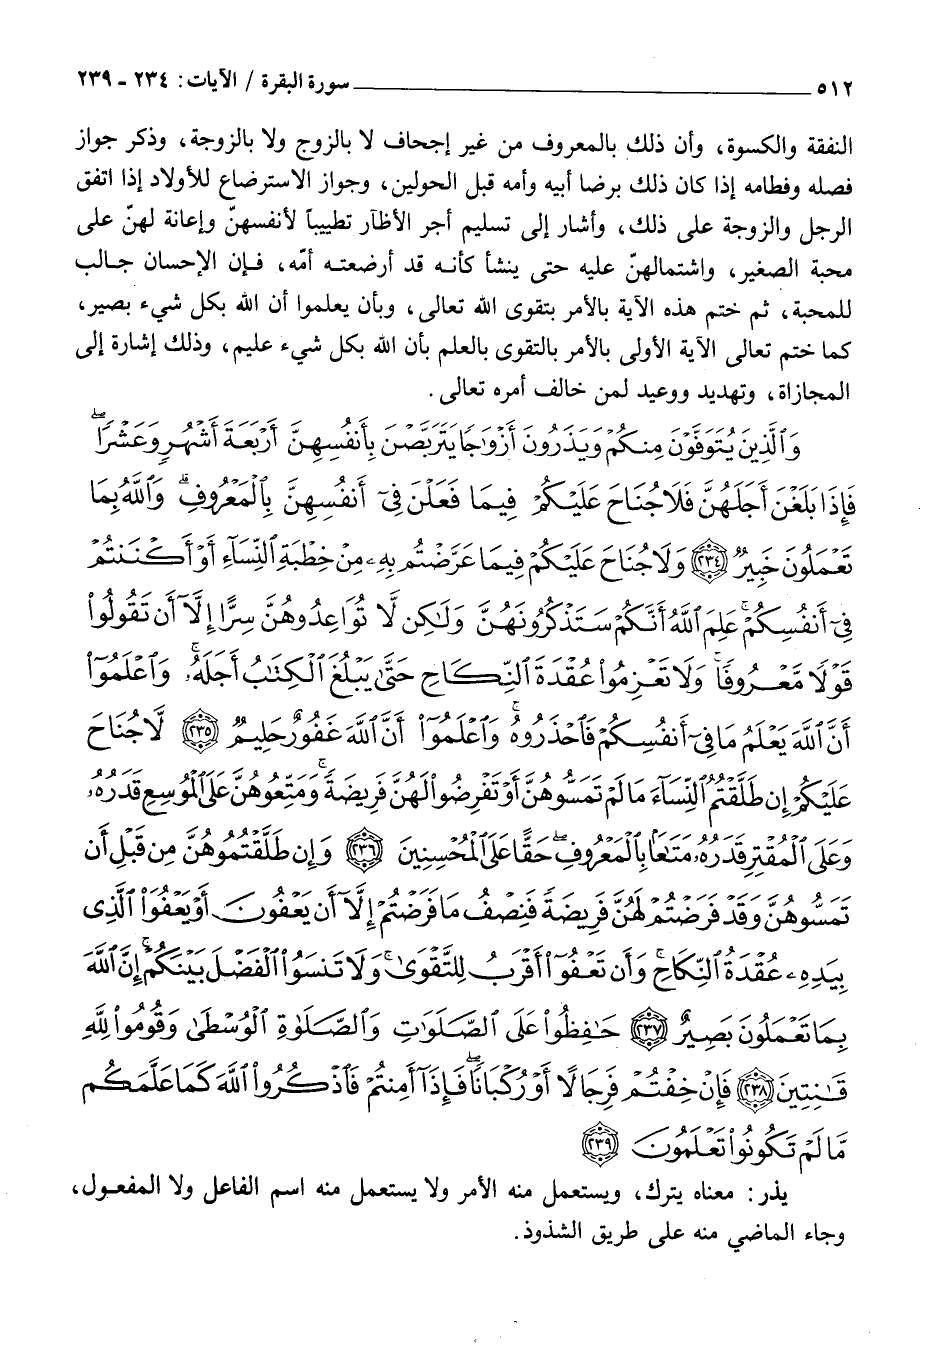 ٥١٢ سورة البقرة / الآيات: ٢٣٤ - ٢٣٩
النفقة والكسوة، وأن ذلك بالمعروف من غير إجحاف لا بالزوج ولا بالزوجة، وذكر جواز
فصله وفطامه إذا كان ذلك برضا أبيه وأمه قبل الحولين، وجواز الاسترضاع للأولاد إذا اتفق
الرجل والزوجة على ذلك، وأشار إلى تسليم أجر الأظآر تطييباً لأنفسهنّ وإعانة لهنّ على
محبة الصغير، واشتمالهنّ عليه حتى ينشأ كأنه قد أرضعته أمّه، فإن الإحسان جالب
للمحبة، ثم ختم هذه الآية بالأمر بتقوى الله تعالى، وبأن يعلموا أن الله بكل شيء بصير،
كما ختم تعالى الآية الأولى بالأمر بالتقوى بالعلم بأن الله بكل شيء عليم، وذلك إشارة إلى
المجازاة، وتهديد ووعيد لمن خالف أمره تعالى.
وَٱلَّذِينَ يُتَوَفَّوْنَ مِنكُمْ وَيَذَرُونَ أَزْوَٰجًا يَتَرَبَّصْنَ بِأَنفُسِهِنَّ أَرْبَعَةَ أَشْهُرٍ وَعَشْرًا ۖ
فَإِذَا بَلَغْنَ أَجَلَهُنَّ فَلَا جُنَاحَ عَلَيْكُمْ فِيمَا فَعَلْنَ فِىٓ أَنفُسِهِنَّ بِٱلْمَعْرُوفِ ۗ وَٱللَّهُ بِمَا
تَعْمَلُونَ خَبِيرٌ ﴿٢٣٤﴾ وَلَا جُنَاحَ عَلَيْكُمْ فِيمَا عَرَّضْتُم بِهِۦ مِنْ خِطْبَةِ ٱلنِّسَآءِ أَوْ أَكْنَنتُمْ
فِىٓ أَنفُسِكُمْ ۚ عَلِمَ ٱللَّهُ أَنَّكُمْ سَتَذْكُرُونَهُنَّ وَلَٰكِن لَّا تُوَاعِدُوهُنَّ سِرًّا إِلَّآ أَن تَقُولُوا۟
قَوْلًا مَّعْرُوفًا ۚ وَلَا تَعْزِمُوا۟ عُقْدَةَ ٱلنِّكَاحِ حَتَّىٰ يَبْلُغَ ٱلْكِتَٰبُ أَجَلَهُۥ ۚ وَٱعْلَمُوٓا۟
أَنَّ ٱللَّهَ يَعْلَمُ مَا فِىٓ أَنفُسِكُمْ فَٱحْذَرُوهُ ۚ وَٱعْلَمُوٓا۟ أَنَّ ٱللَّهَ غَفُورٌ حَلِيمٌ ﴿٢٣٥﴾ لَّا جُنَاحَ
عَلَيْكُمْ إِن طَلَّقْتُمُ ٱلنِّسَآءَ مَا لَمْ تَمَسُّوهُنَّ أَوْ تَفْرِضُوا۟ لَهُنَّ فَرِيضَةً ۚ وَمَتِّعُوهُنَّ عَلَى ٱلْمُوسِعِ قَدَرُهُۥ
وَعَلَى ٱلْمُقْتِرِ قَدَرُهُۥ مَتَٰعًۢا بِٱلْمَعْرُوفِ ۖ حَقًّا عَلَى ٱلْمُحْسِنِينَ ﴿٢٣٦﴾ وَإِن طَلَّقْتُمُوهُنَّ مِن قَبْلِ أَن
تَمَسُّوهُنَّ وَقَدْ فَرَضْتُمْ لَهُنَّ فَرِيضَةً فَنِصْفُ مَا فَرَضْتُمْ إِلَّآ أَن يَعْفُونَ أَوْ يَعْفُوَا۟ ٱلَّذِى
بِيَدِهِۦ عُقْدَةُ ٱلنِّكَاحِ ۚ وَأَن تَعْفُوٓا۟ أَقْرَبُ لِلتَّقْوَىٰ ۚ وَلَا تَنسَوُا۟ ٱلْفَضْلَ بَيْنَكُمْ ۚ إِنَّ ٱللَّهَ
بِمَا تَعْمَلُونَ بَصِيرٌ ﴿٢٣٧﴾ حَٰفِظُوا۟ عَلَى ٱلصَّلَوَٰتِ وَٱلصَّلَوٰةِ ٱلْوُسْطَىٰ وَقُومُوا۟ لِلَّهِ
قَٰنِتِينَ ﴿٢٣٨﴾ فَإِنْ خِفْتُمْ فَرِجَالًا أَوْ رُكْبَانًا ۖ فَإِذَآ أَمِنتُمْ فَٱذْكُرُوا۟ ٱللَّهَ كَمَا عَلَّمَكُم
مَّا لَمْ تَكُونُوا۟ تَعْلَمُونَ ﴿٢٣٩﴾
يذر: معناه يترك، ويستعمل منه الأمر ولا يستعمل منه اسم الفاعل ولا المفعول،
وجاء الماضي منه على طريق الشذوذ.